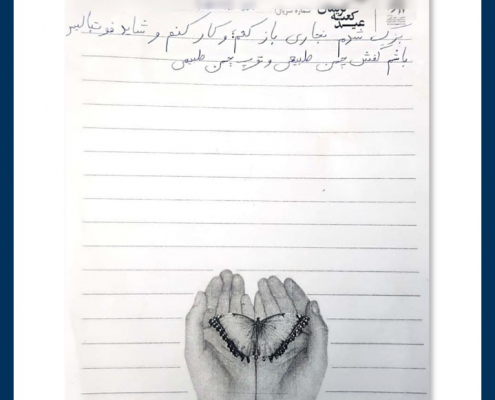 شماره سریال:
بزرگ شدم نجاری باز کنم و کار کنم و شاید فوتبالیس
باشم کفش چمن طبیعی و توپ چمن طبیعی